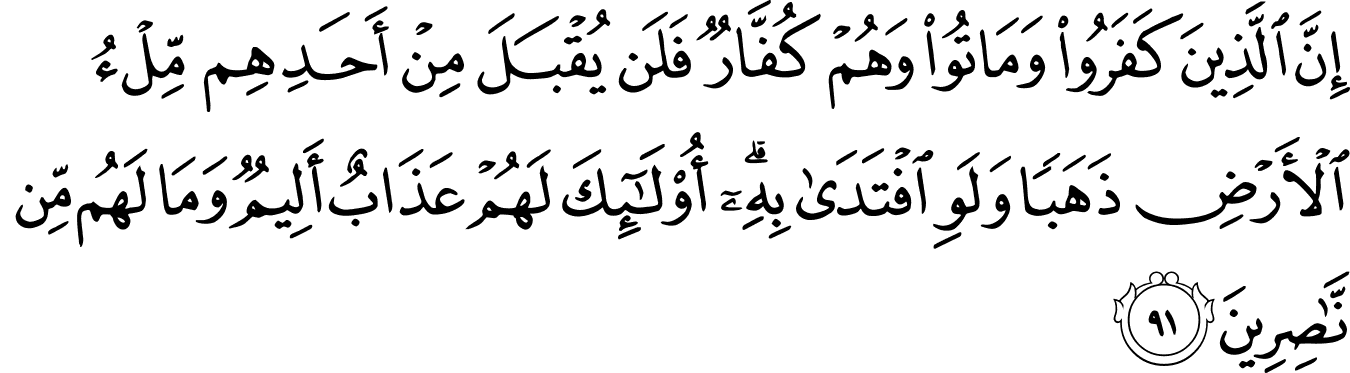 إِنَّ ٱلَّذِينَ كَفَرُوا۟ وَمَاتُوا۟ وَهُمْ كُفَّارٌ فَلَن يُقْبَلَ مِنْ أَحَدِهِم مِّلْءُ
ٱلْأَرْضِ ذَهَبًا وَلَوِ ٱفْتَدَىٰ بِهِۦٓ ۗ أُو۟لَـٰٓئِكَ لَهُمْ عَذَابٌ أَلِيمٌ وَمَا لَهُم مِّن
نَّـٰصِرِينَ ٩١